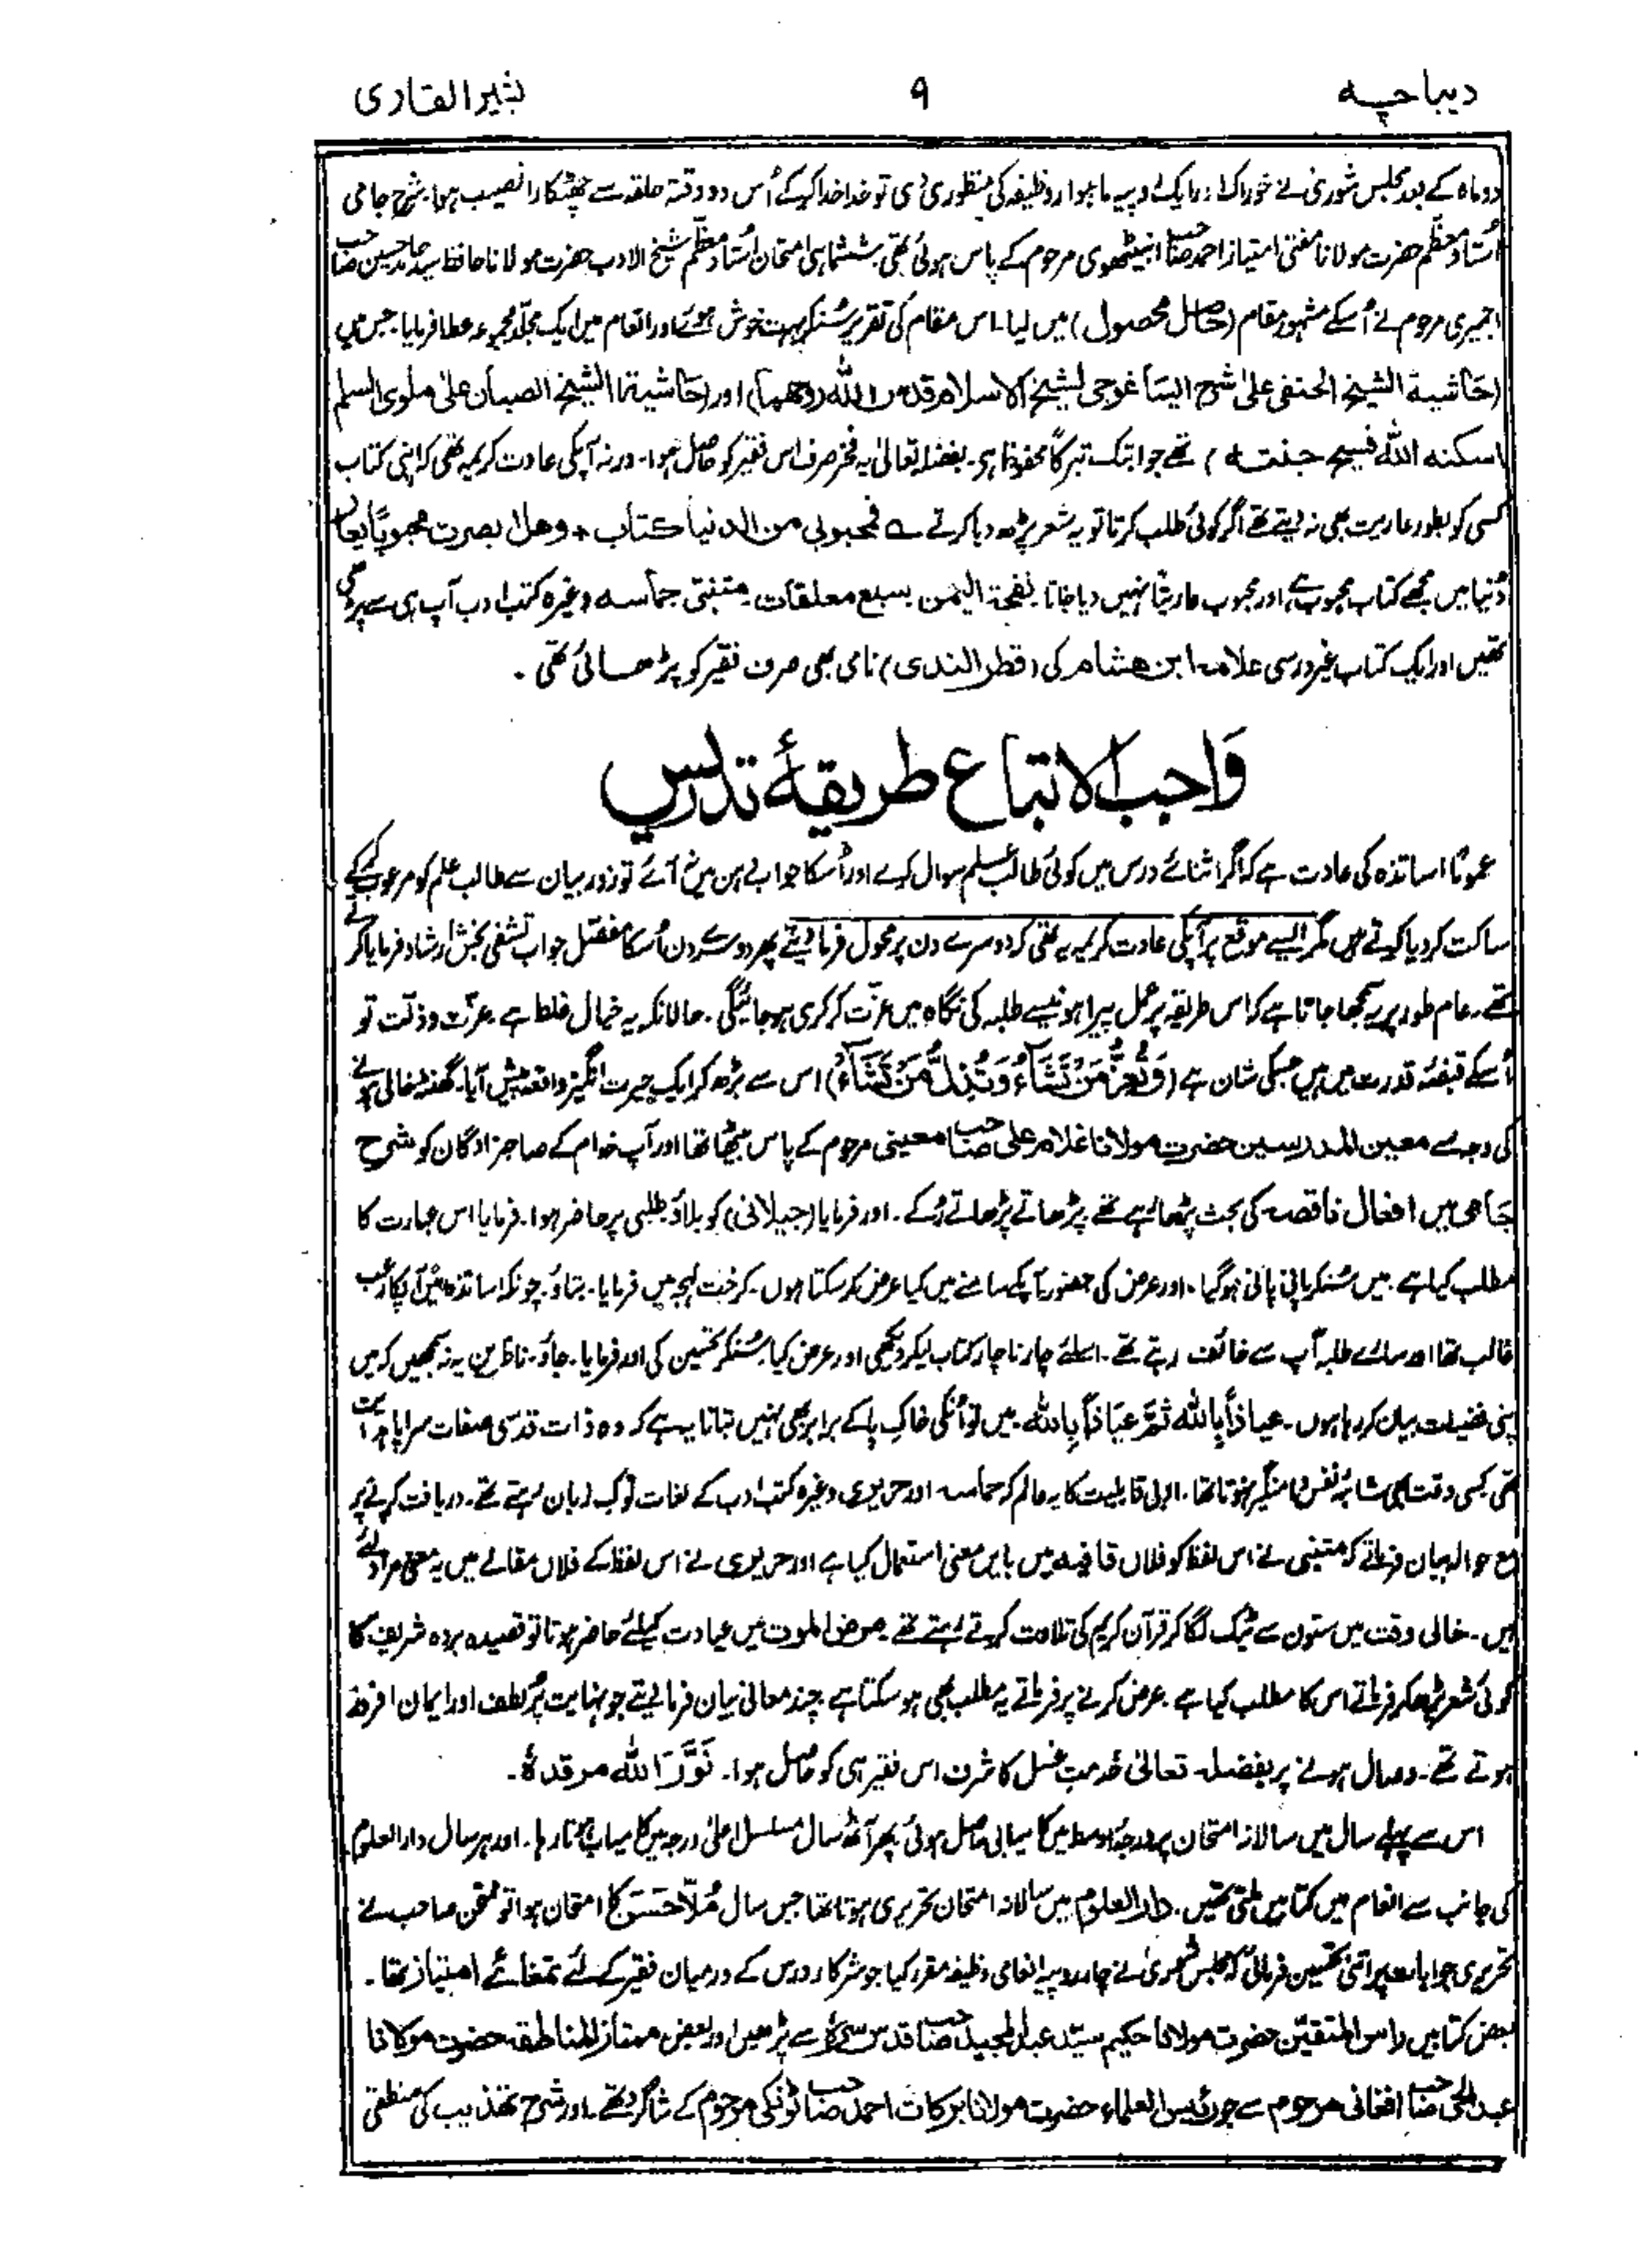 دیباچہ
۹
بشیرالقاری
دوماہ کے بعد مجلس شوریٰ نے خوراک اور ایک روپیہ ماہوار وظیفہ کی منظوری دی تو خدا خدا کرکے اُس دو وقتہ حلقہ سے چھٹکارا نصیب ہوا۔ شرح جامی
اُستاد معظم حضرت مولانا مفتی امتیاز احمد صاحب انبیٹھوی مرحوم کے پاس ہوئی تھی۔ ششماہی امتحان اُستاد معظم شیخ الادب حضرت مولانا حافظ سید حامد حسین صاحب
اجمیری مرحوم نے اُسکے مشہور مقام (حاصل محصول) میں لیا۔ اس مقام کی تقریر سُنکر بہت خوش ہوئے اور انعام میں ایک مجلد مجموعہ عطا فرمایا۔ جس میں
(حاشیۃ الشیخ الحنفی علیٰ شرح ایساغوجی لشیخ الاسلام قدس اللہ روحہما) اور (حاشیۃ الشیخ الصبان علیٰ ملوی السلم
اسکنہ اللہ فسیح جنتہ) تھے جو ابتک تبرکاً محفوظ ہے۔ بفضلہٖ تعالیٰ یہ فخر صرف اس فقیر کو حاصل ہوا۔ ورنہ آپکی عادت کریمہ تھی کہ اپنی کتاب
کسی کو بطور عاریت بھی نہ دیتے تھے اگر کوئی طلب کرتا تو یہ شعر پڑھ دیا کرتے ؎ فمحبوبی من الدنیا کتاب + وھل ابصرت محبوبًا یعار
دُنیا میں مجھے کتاب محبوب ہے، اور محبوب عاریتًا نہیں دیا جاتا۔ نفحۃ الیمن سبع معلقات۔ متنبی حماسہ وغیرہ کتب ادب آپ ہی سے پڑھی
تھیں اور ایک کتاب غیر درسی علامہ ابن ھشام کی (قطر الندی) نامی بھی صرف فقیر کو پڑھائی تھی۔
وَاجب الاتباع طریقۂ تدریس
عمومًا اساتذہ کی عادت ہے کہ اگر اثنائے درس میں کوئی طالب علم سوال کرے اور اُسکا جواب ذہن میں نہ آئے تو زور بیان سے طالب علم کو مرعوب کرکے
ساکت کردیا کرتے ہیں مگر ایسے موقع پر آپکی عادت کریمہ یہ تھی کہ دوسرے دن پر محول فرما دیتے پھر دوسرے دن اُسکا مفصّل جواب تشفی بخش ارشاد فرمایا کرتے
تھے۔ عام طور پر یہ سمجھا جاتا ہے کہ اس طریقہ پر عمل پیرا ہونیسے طلبہ کی نگاہ میں عزّت کرکری ہوجائیگی۔ حالانکہ یہ خیال غلط ہے۔ عزّت و ذلّت تو
اُسکے قبضۂ قدرت میں ہیں جسکی شان ہے (وَتُعِزُّ مَنْ تَشَاءُ وَتُذِلُّ مَنْ تَشَاءُ) اس سے بڑھ کر ایک حیرت انگیز واقعہ پیش آیا۔ گھنٹہ خالی ہونے
کی وجہ سے معین المدرسین حضرت مولانا غلام علی صاحب معینی مرحوم کے پاس بیٹھا تھا اور آپ خدام کے صاحبزادگان کو شرح
جامی میں افعال ناقصہ کی بحث پڑھا رہے تھے پڑھاتے پڑھاتے رُکے۔ اور فرمایا (جیلانی) کو بلاؤ۔ طلبی پر حاضر ہوا۔ فرمایا اس عبارت کا
مطلب کیا ہے۔ میں سُنکر پانی پانی ہوگیا۔ اور عرض کی حضور آپکے سامنے میں کیا عرض کرسکتا ہوں۔ کرخت لہجہ میں فرمایا۔ بتاؤ۔ چونکہ اساتذہ میں آپکا رعب
غالب تھا اور سارے طلبہ آپ سے خائف رہتے تھے۔ اسلئے چار ناچار کتاب لیکر دیکھی اور عرض کیا۔ سُنکر تحسین کی اور فرمایا۔ جاؤ۔ ناظرین یہ نہ سمجھیں کہ میں
اپنی فضیلت بیان کررہا ہوں۔ عیاذًا باللہ ثم عیاذًا باللہ۔ میں تو اُنکی خاکِ پا کے برابر بھی نہیں بتانا یہ ہے کہ وہ ذات قدسی صفات سراپا للّٰہیت
تھی کسی وقت بھی شائبۂ نفس دامنگیر نہوتا تھا۔ ادبی قابلیت کا یہ عالم کہ حماسہ اور حریری وغیرہ کتب ادب کے لغات نوک زبان رہتے تھے۔ دریافت کرنے پر
مع حوالہ بیان فرماتے کہ متنبی نے اس لفظ کو فلاں قافیہ میں بایں معنی استعمال کیا ہے اور حریری نے اس لفظ کے فلاں مقالے میں یہ معنی مراد لئے
ہیں۔ خالی وقت میں ستون سے ٹیک لگا کر قرآن کریم کی تلاوت کرتے رہتے تھے۔ مرض الموت میں عیادت کیلئے حاضر ہوتا تو قصیدہ بردہ شریف کا
کوئی شعر پڑھکر فرماتے اس کا مطلب کیا ہے۔ عرض کرنے پر فرماتے یہ مطلب بھی ہوسکتا ہے۔ چند معانی بیان فرما دیتے جو نہایت پُر لطف اور ایمان افروز
ہوتے تھے۔ وصال ہونے پر بفضلہ تعالیٰ خدمت غسل کا شرف اس فقیر ہی کو حاصل ہوا۔ نَوَّرَ اللہ مرقدہٗ۔
اس سے پہلے سال میں سالانہ امتحان پر درجۂ اوسط میں کامیابی حاصل ہوئی پھر آٹھ سال مسلسل اعلیٰ درجہ میں کامیاب ہوتا رہا۔ اور ہر سال دارالعلوم
کی جانب سے انعام میں کتابیں ملتی تھیں۔ دارالعلوم میں سالانہ امتحان تحریری ہوتا تھا جس سال مُلّا حَسَن کا امتحان ہوا تو ممتحن صاحب نے
تحریری جوابات پر اتنی تحسین فرمائی کہ مجلس شوریٰ نے چار روپیہ انعامی وظیفہ مقرر کیا جو شرکاء درس کے درمیان فقیر کے لئے تمغائے امتیاز تھا۔
بعض کتابیں راس المتقین حضرت مولانا حکیم سیّد عبدالمجید صاحب قدس سرہٗ سے پڑھیں اور بعض ممتاز المناطقہ حضرت مولانا
عبدالحی صاحب افغانی مرحوم سے جو رئیس العلماء حضرت مولانا برکات احمد صاحب ٹونکی مرحوم کے شاگرد تھے۔ اور شرح تھذیب کی منطقی